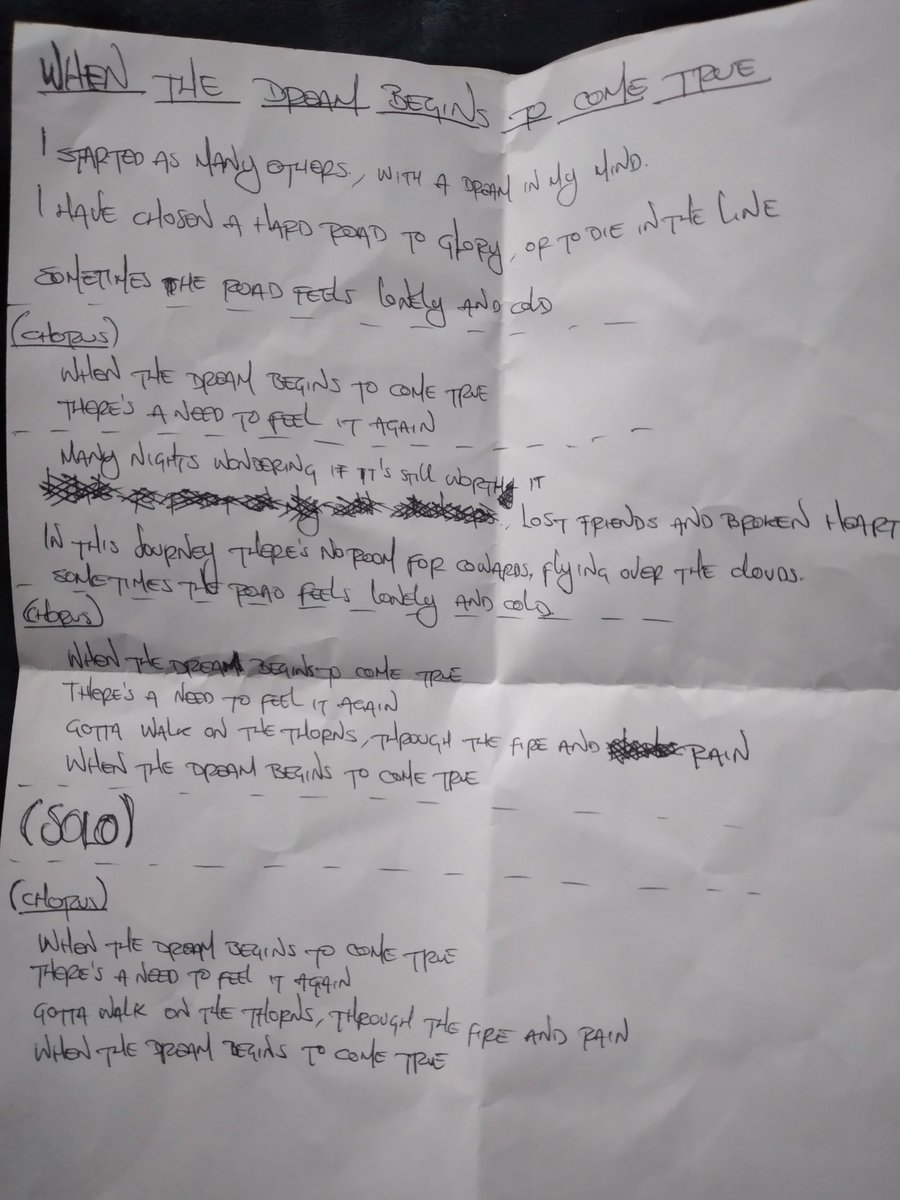 WHEN THE DREAM BEGINS TO COME TRUE
I STARTED AS MANY OTHERS, WITH A DREAM IN MY MIND.
I HAVE CHOSEN A HARD ROAD TO GLORY, OR TO DIE IN THE LINE
SOMETIMES THE ROAD FEELS LONELY AND COLD
(CHORUS)
WHEN THE DREAM BEGINS TO COME TRUE
THERE'S A NEED TO FEEL IT AGAIN
MANY NIGHTS WONDERING IF IT'S STILL WORTH IT
, LOST FRIENDS AND BROKEN HEART
IN THIS JOURNEY THERE'S NO ROOM FOR COWARDS, FLYING OVER THE CLOUDS.
SOMETIMES THE ROAD FEELS LONELY AND COLD
(CHORUS)
WHEN THE DREAM BEGINS TO COME TRUE
THERE'S A NEED TO FEEL IT AGAIN
GOTTA WALK ON THE THORNS, THROUGH THE FIRE AND RAIN
WHEN THE DREAM BEGINS TO COME TRUE
(SOLO)
(CHORUS)
WHEN THE DREAM BEGINS TO COME TRUE
THERE'S A NEED TO FEEL IT AGAIN
GOTTA WALK ON THE THORNS, THROUGH THE FIRE AND RAIN
WHEN THE DREAM BEGINS TO COME TRUE